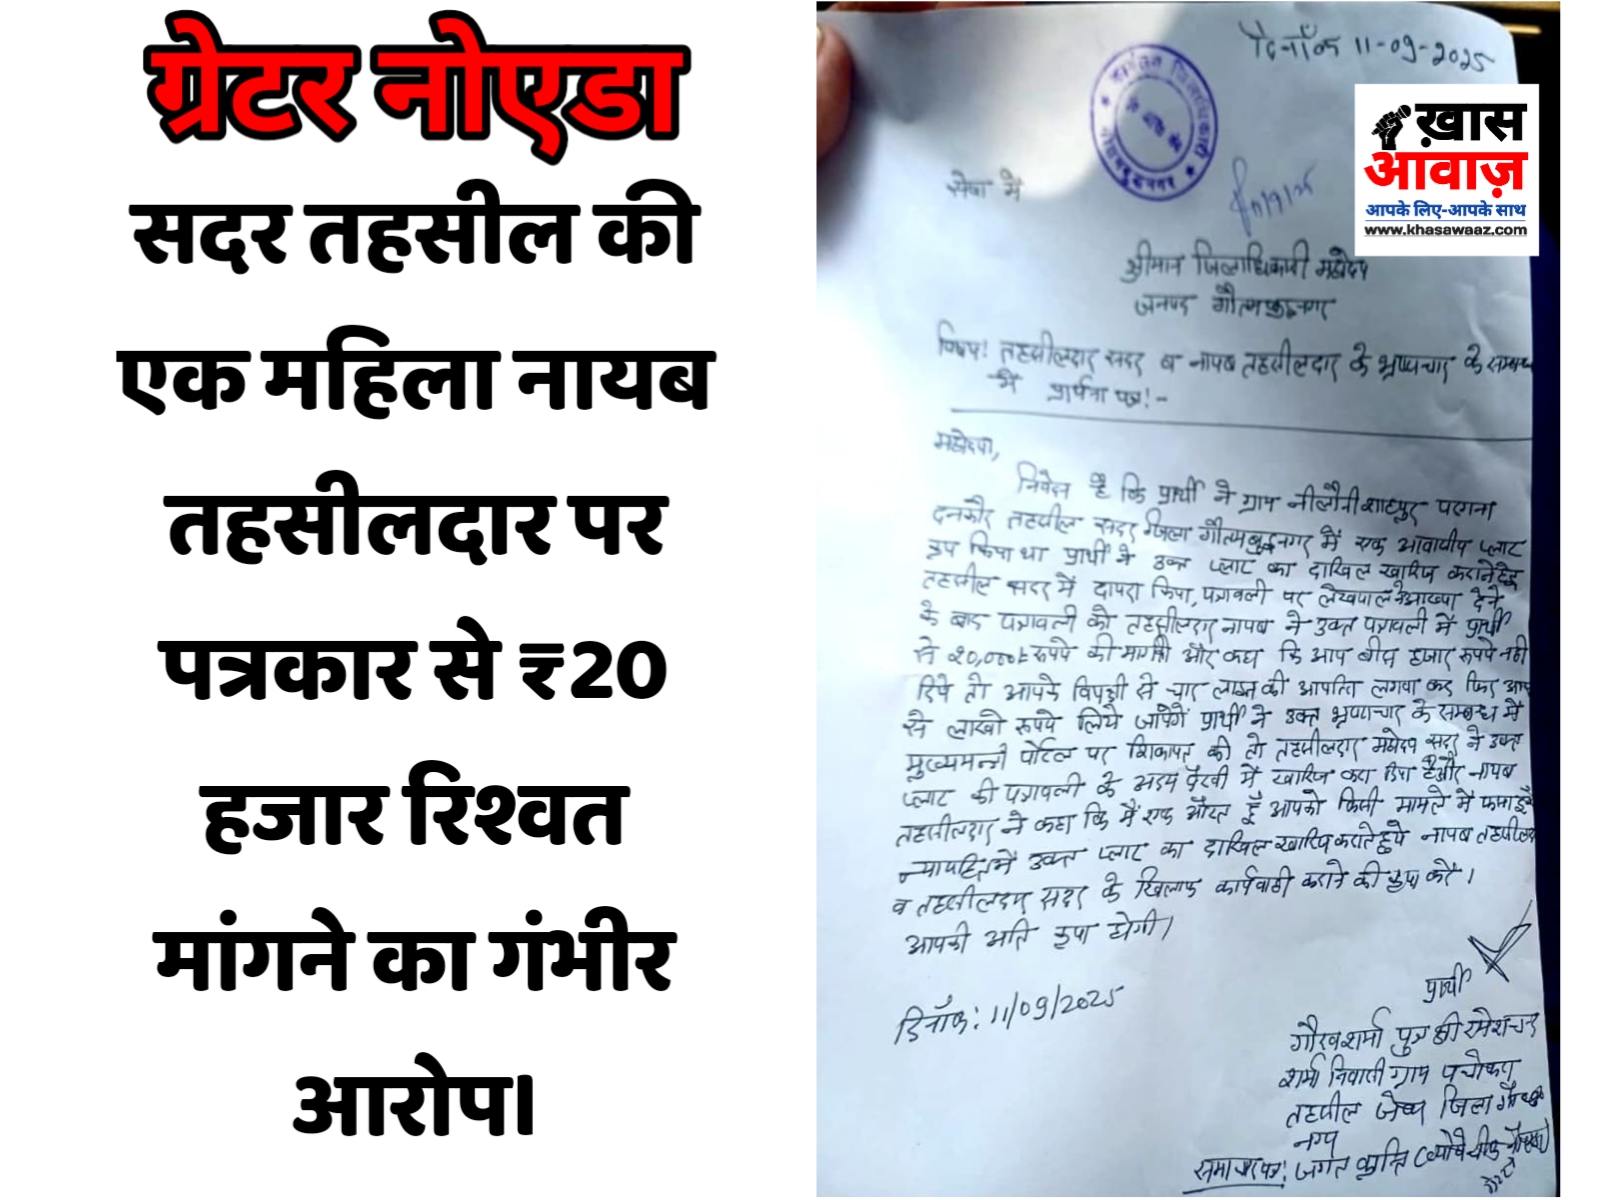 ग्रेटर नोएडा
सदर तहसील की
एक महिला नायब
तहसीलदार पर
पत्रकार से ₹20
हजार रिश्वत
मांगने का गंभीर
आरोप।
दिनाँक 11-09-2025
ख़ास
आवाज़
आपके लिए-आपके साथ
www.khasawaaz.com
सेवा में
श्रीमान जिलाधिकारी महोदय
जनपद गौतमबुद्धनगर
विषय! तहसीलदार सदर व नायब तहसीलदार के भ्रष्टाचार के सम्बन्ध
में प्रार्थना पत्र!-
महोदया,
निवेदन है कि प्रार्थी ने ग्राम नीलौनी शाहपुर परगना
दनकौर तहसील सदर जिला गौतमबुद्धनगर में एक आवासीय प्लाट
क्रय किया था प्रार्थी ने उक्त प्लाट का दाखिल खारिज कराने हेतु
तहसील सदर में दायरा किया, पत्रावली पर लेखपाल ने आख्या देने
के बाद पत्रावली को तहसीलदार नायब ने उक्त पत्रावली में प्रार्थी
से 20,000/- रूपये की मांग की और कहा कि आप बीस हजार रूपये नही
दिये तो आपके विपक्षी से चार लाख की आपत्ति लगवा कर फिर आप
से लाखो रूपये लिये जायेगें प्रार्थी ने उक्त भ्रष्टाचार के सम्बन्ध में
मुख्यमन्त्री पोर्टल पर शिकायत की तो तहसीलदार महोदय सदर ने उक्त
प्लाट की पत्रावली के अदम पैरवी में खारिज करा दिया है और नायब
तहसीलदार ने कहा कि मैं एक औरत हूँ आपको किसी मामले में फसा
न्यायहित में उक्त प्लाट का दाखिल खारिज कराते हुये नायब तहसीलदार
व तहसीलदार सदर के खिलाफ कार्यवाही कराने की कृपा करें।
आपकी अति कृपा होगी।
दिनाँक: 11/09/2025
प्रार्थी
गौरव शर्मा पुत्र श्री रमेशचन्द
शर्मा निवासी ग्राम पचोकरा
तहसील जेवर जिला
नगर
समाचार पत्र! जगत क्रान्ति